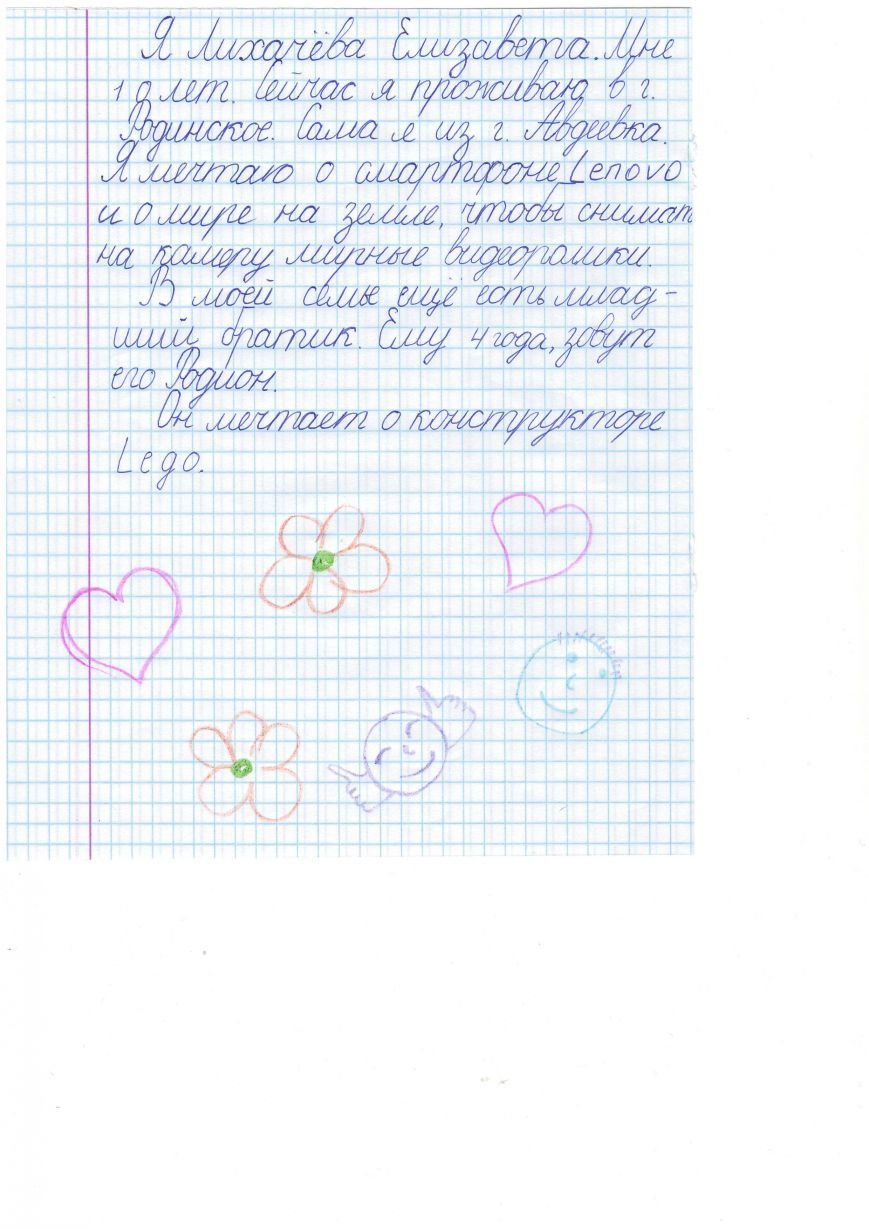 Я Лихачёва Елизавета. Мне
10 лет. Сейчас я проживаю в г.
Родинское. Сама я из г. Авдеевка.
Я мечтаю о смартфоне Lenovo
и о мире на земле, чтобы снимат
на камеру мирные видеоролики.
В моей семье ещё есть млад-
ший братик. Ему 4 года, зовут
его Родион.
Он мечтает о конструкторе
Lego.